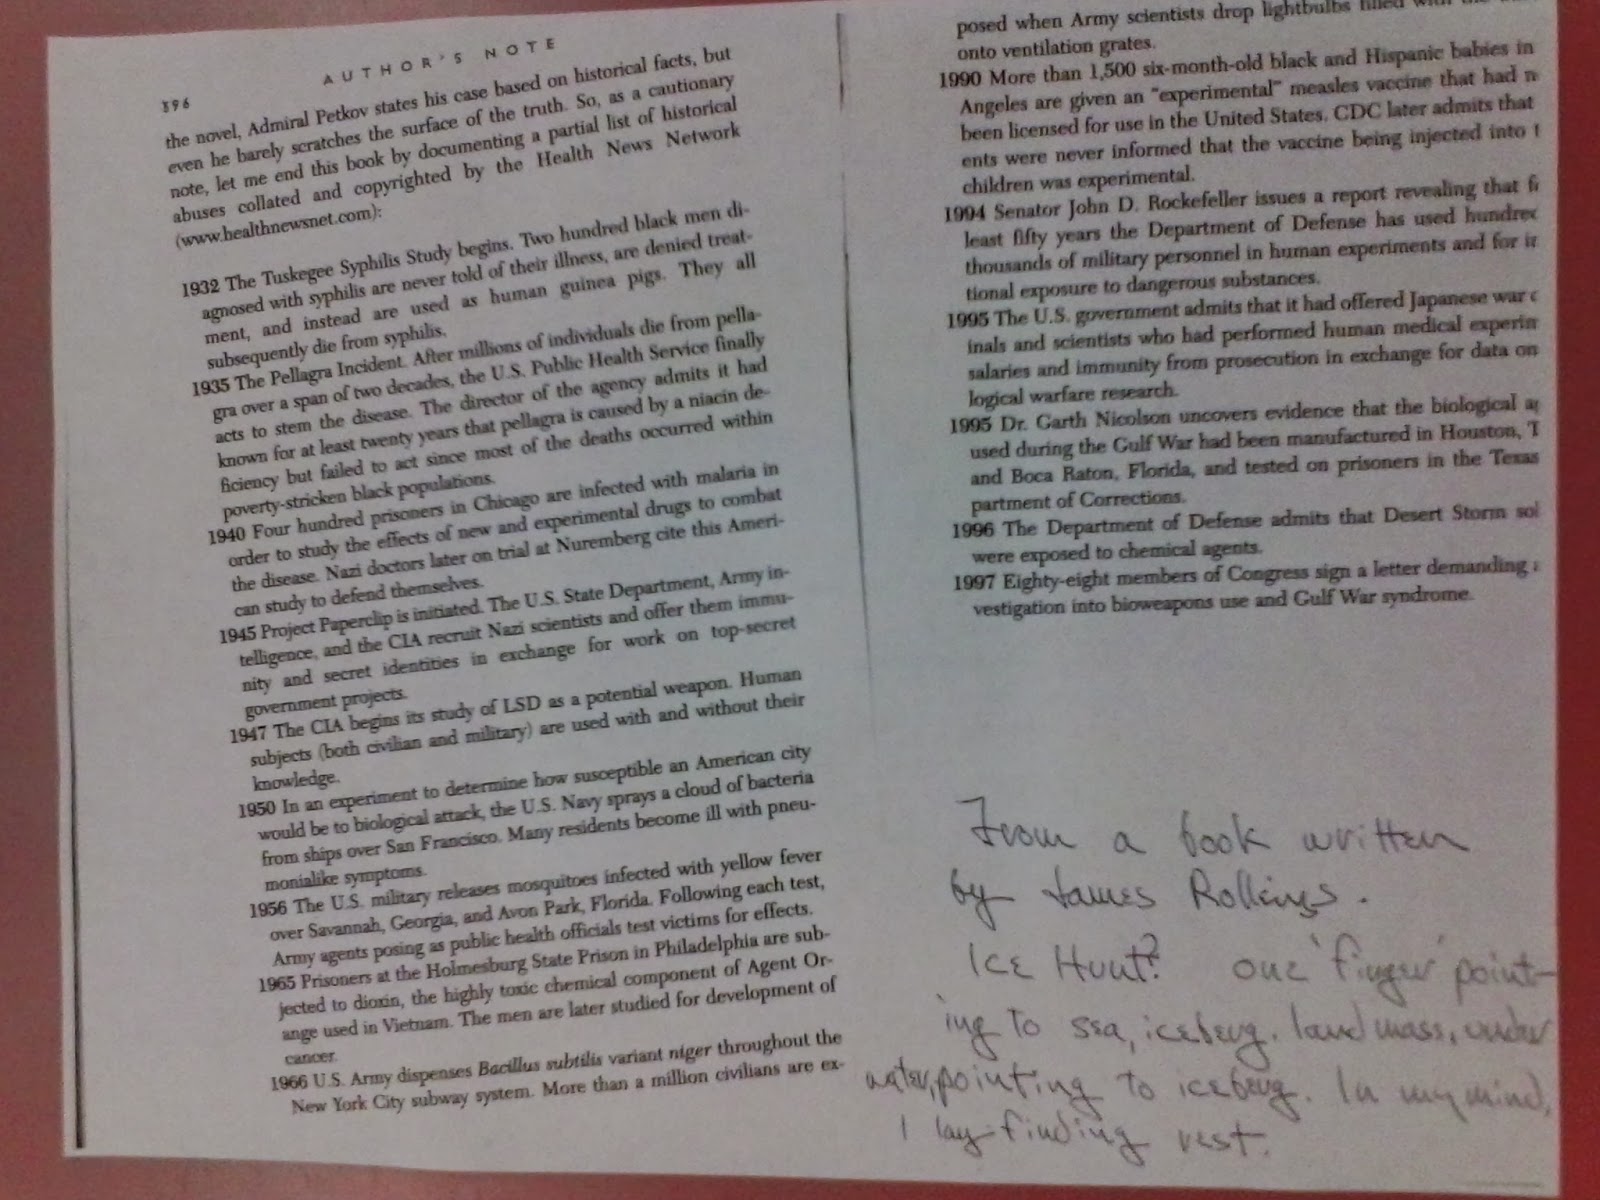 AUTHOR'S NOTE
396
the novel, Admiral Petkov states his case based on historical facts, but
even he barely scratches the surface of the truth. So, as a cautionary
note, let me end this book by documenting a partial list of historical
abuses collated and copyrighted by the Health News Network
(www.healthnewsnet.com):
1932 The Tuskegee Syphilis Study begins. Two hundred black men di-
agnosed with syphilis are never told of their illness, are denied treat-
ment, and instead are used as human guinea pigs. They all
subsequently die from syphilis.
1935 The Pellagra Incident. After millions of individuals die from pella-
gra over a span of two decades, the U.S. Public Health Service finally
acts to stem the disease. The director of the agency admits it had
known for at least twenty years that pellagra is caused by a niacin de-
ficiency but failed to act since most of the deaths occurred within
poverty-stricken black populations.
1940 Four hundred prisoners in Chicago are infected with malaria in
order to study the effects of new and experimental drugs to combat
the disease. Nazi doctors later on trial at Nuremberg cite this Ameri-
can study to defend themselves.
1945 Project Paperclip is initiated. The U.S. State Department, Army in-
telligence, and the CIA recruit Nazi scientists and offer them immu-
nity and secret identities in exchange for work on top-secret
government projects.
1947 The CIA begins its study of LSD as a potential weapon. Human
subjects (both civilian and military) are used with and without their
knowledge.
1950 In an experiment to determine how susceptible an American city
would be to biological attack, the U.S. Navy sprays a cloud of bacteria
from ships over San Francisco. Many residents become ill with pneu-
monialike symptoms.
1956 The U.S. military releases mosquitoes infected with yellow fever
over Savannah, Georgia, and Avon Park, Florida. Following each test,
Army agents posing as public health officials test victims for effects.
1965 Prisoners at the Holmesburg State Prison in Philadelphia are sub-
jected to dioxin, the highly toxic chemical component of Agent Or-
ange used in Vietnam. The men are later studied for development of
cancer.
1966 U.S. Army dispenses Bacillus subtilis variant niger throughout the
New York City subway system. More than a million civilians are ex-
posed when Army scientists drop lightbulbs filled with the
onto ventilation grates.
1990 More than 1,500 six-month-old black and Hispanic babies in
Angeles are given an "experimental" measles vaccine that had n
been licensed for use in the United States. CDC later admits that
ents were never informed that the vaccine being injected into t
children was experimental.
1994 Senator John D. Rockefeller issues a report revealing that f
least fifty years the Department of Defense has used hundred
thousands of military personnel in human experiments and for in
tional exposure to dangerous substances.
1995 The U.S. government admits that it had offered Japanese war c
inals and scientists who had performed human medical experim
salaries and immunity from prosecution in exchange for data on
logical warfare research.
1995 Dr. Garth Nicolson uncovers evidence that the biological ag
used during the Gulf War had been manufactured in Houston, T
and Boca Raton, Florida, and tested on prisoners in the Texas
partment of Corrections.
1996 The Department of Defense admits that Desert Storm sol
were exposed to chemical agents.
1997 Eighty-eight members of Congress sign a letter demanding
vestigation into bioweapons use and Gulf War syndrome.
From a book written
by James Rollings.
Ice Hunt? one 'finger' point-
ing to sea, iceberg. land mass, under
water, pointing to iceberg. In my mind,
I lay finding rest.